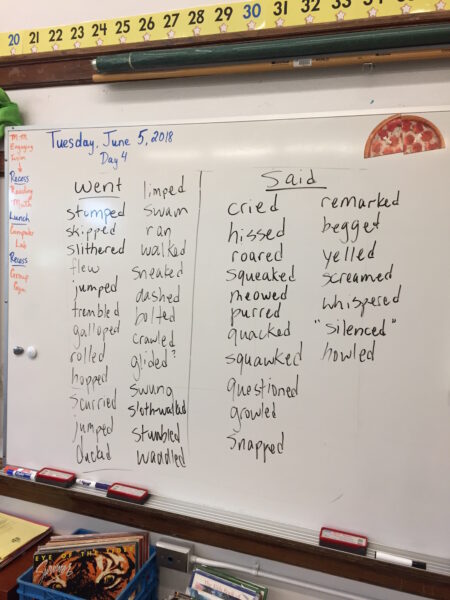 20 21 22 23 24 25 26 27 28 29 30 31 32 33 34 35
Tuesday, June 5, 2018
Day 4
Engaging
Recess
Reading
Math
Lunch
Computer
Lab
Recess
Group
Gym
Went
stomped
skipped
slithered
flew
jumped
trembled
galloped
rolled
hopped
scurried
jumped
ducked
limped
swam
ran
walked
sneaked
dashed
bolted
crawled
glided?
swung
sloth-walked
stumbled
waddled
Said
cried
hissed
roared
squeaked
meowed
purred
quacked
squawked
questioned
growled
snapped
remarked
begget
yelled
screamed
whispered
"silenced"
howled
EYE OF THE